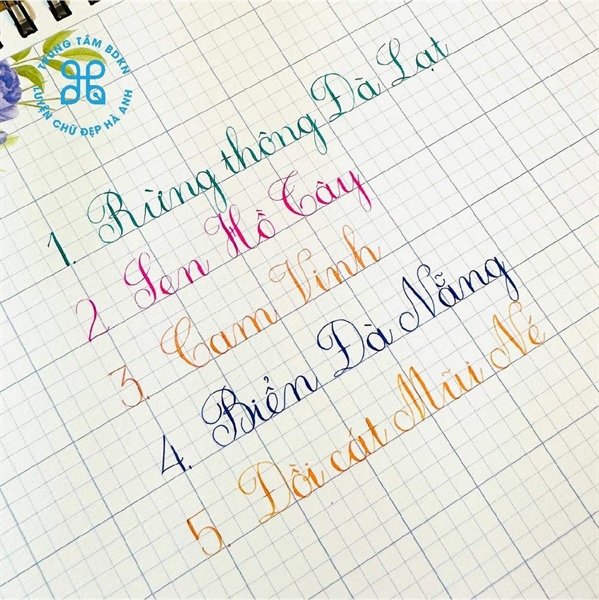 TRUNG TÂM BDKN
LUYỆN CHỮ ĐẸP HÀ ANH
1. Rừng thông Đà Lạt
2. Sen Hồ Tây
3. Cam Vinh
4. Biển Đà Nẵng
5. Đồi cát Mũi Né